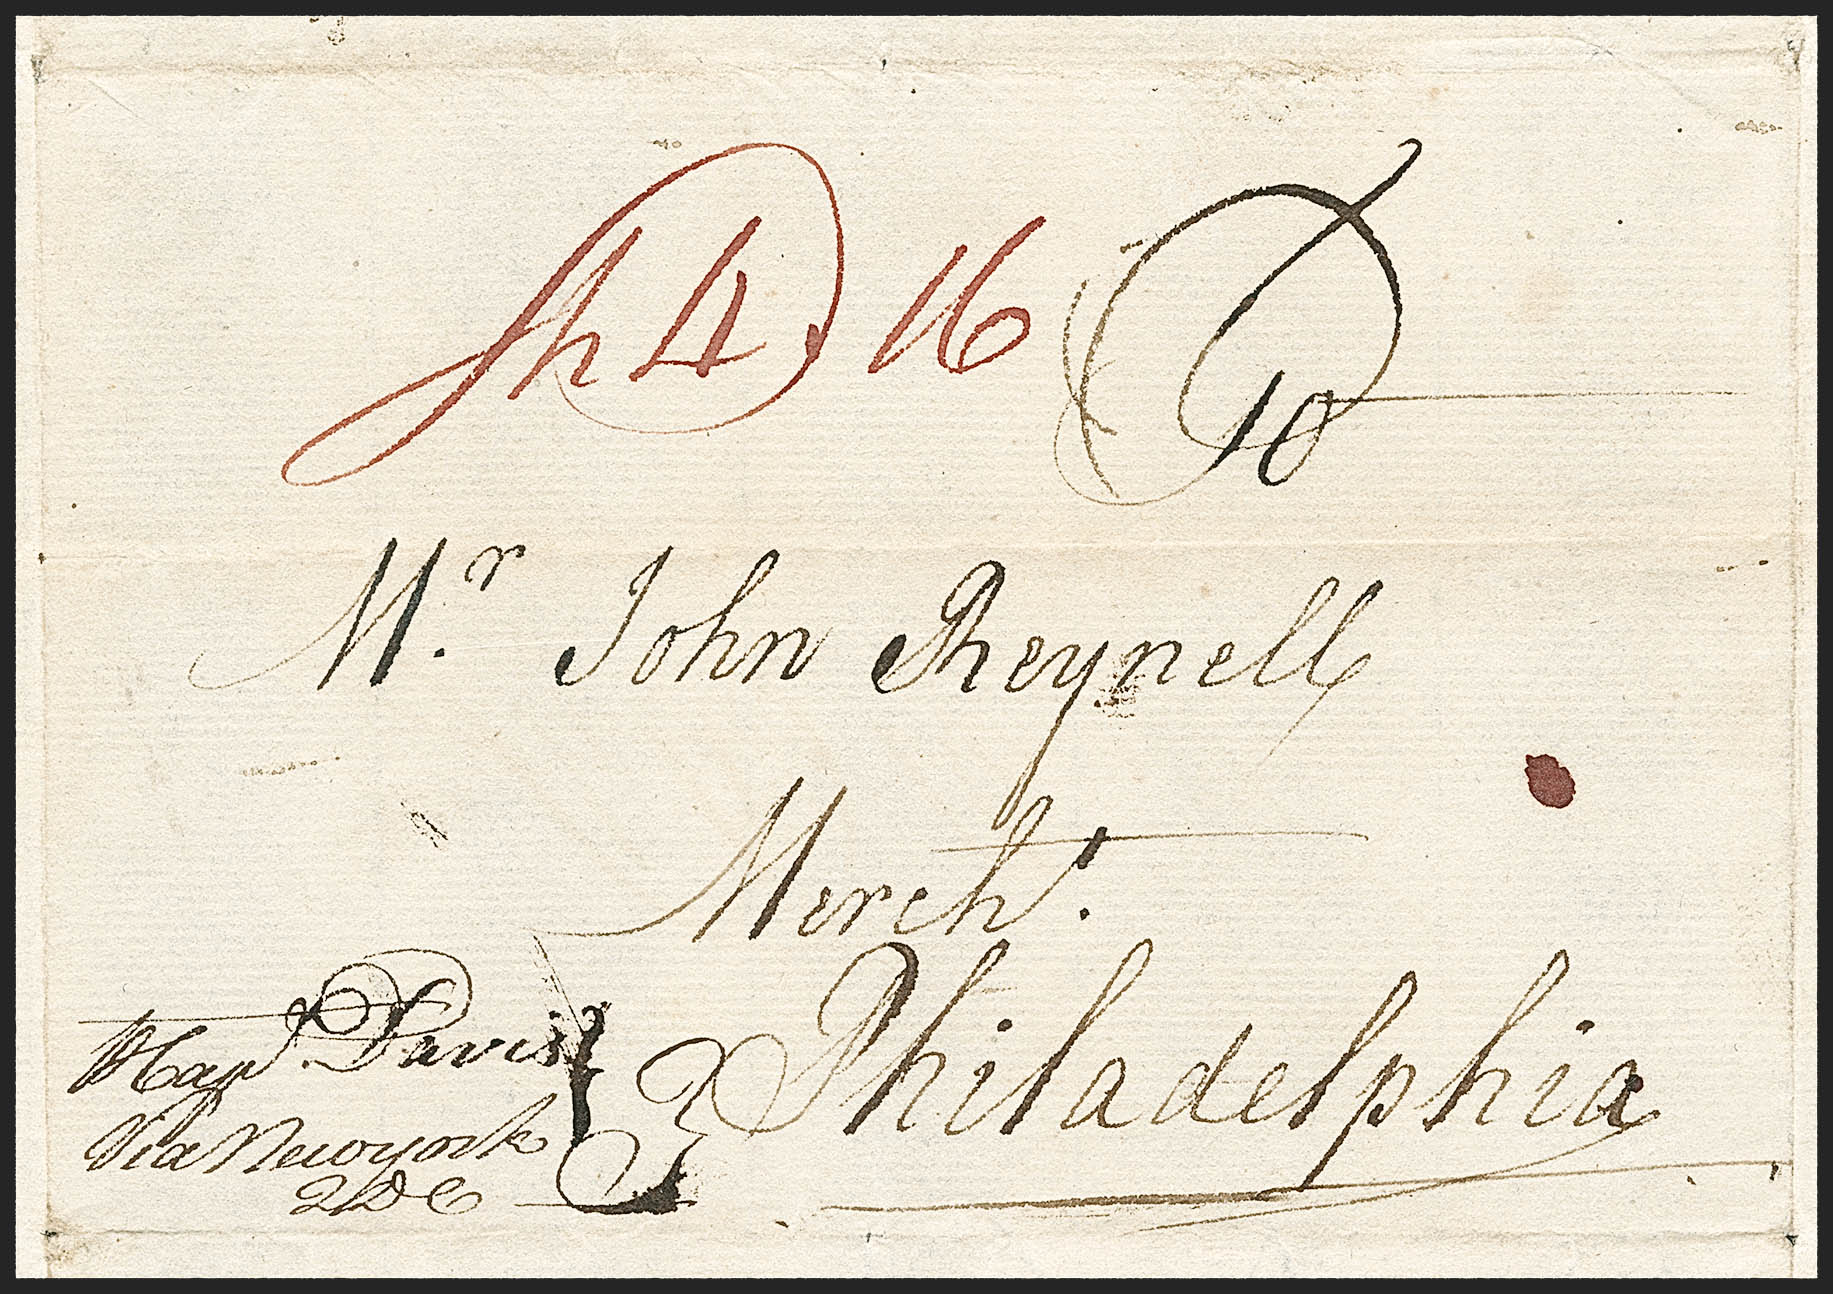 Sh 4 16 10
Mr. John Reynell
Mercht.
Philadelphia
Davis
Via Newyork